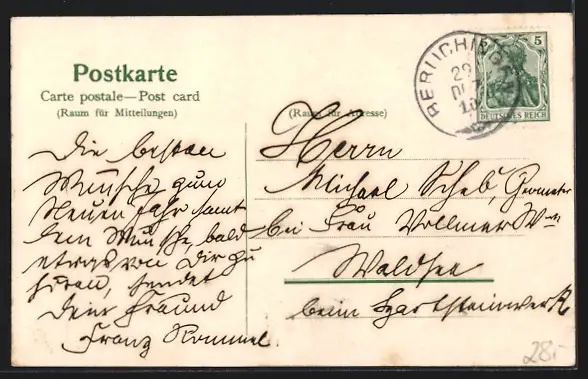 Postkarte
Carte postale—Post card
(Raum für Mitteilungen)
(Raum für Adresse)
BERLICHINGEN
29
DEZ
10
5
DEUTSCHES REICH
Die besten
Wünsche zum
Neuen Jahr samt
dem Wunsche, bald
etwas von Dir zu
hören, sendet
Dein Freund
Franz Rommel.
Herrn
Michael Scheb, Geometer
bei Frau Vollmer Ww
Waldsee
beim Hartsteinwerk
28.-